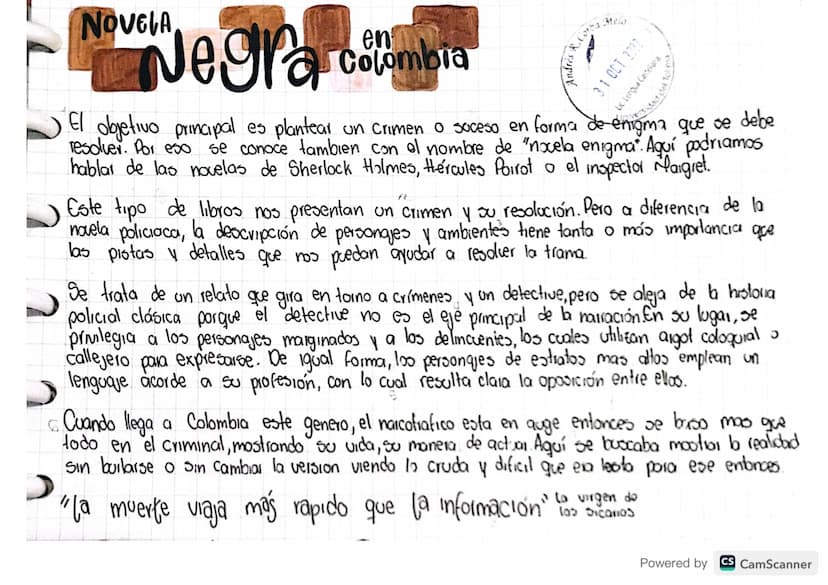 NOVELA
Negra en
Colombia
Andrés R.
31 OCT 2022
El objetivo principal es plantear un crimen o suceso en forma de enigma que se debe
resolver. Por eso se conoce tambien con el nombre de "novela enigma". Aquí podriamos
hablar de las novelas de Sherlock Holmes, Hércules Poirot o el inspector Maigret.
Este tipo de libros nos presentan un crimen y su resolución. Pero a diferencia de la
novela policiaca, la descripción de personajes y ambientes tiene tanta o más importancia que
las pistas y detalles que nos puedan ayudar a resolver la trama
Se trata de un relato que gira en torno a crímenes, y un detective, pero se aleja de la historia
policial clásica porque el detective no es el eje principal de la narración. En su lugar, se
privilegia a los personajes marginados y a los delincuentes, los cuales utilizan argot coloquial o
callejero para expresarse. De igual forma, los personajes de estratos mas altos emplean un
lenguaje acorde a su profesión, con lo cual resulta clara la oposición entre ellos.
Cuando llega a Colombia este genero, el narcotrafico esta en auge entonces se baso mas que
todo en el criminal, mostrando su vida, su manera de actuar. Aquí se buscaba mostrar la realidad
sin burlarse o sin cambiar la version viendo lo cruda y dificil que era esto para ese entonces
"La muerte viaja más rapido que la información" La virgen de
los sicarios
Powered by CS CamScanner